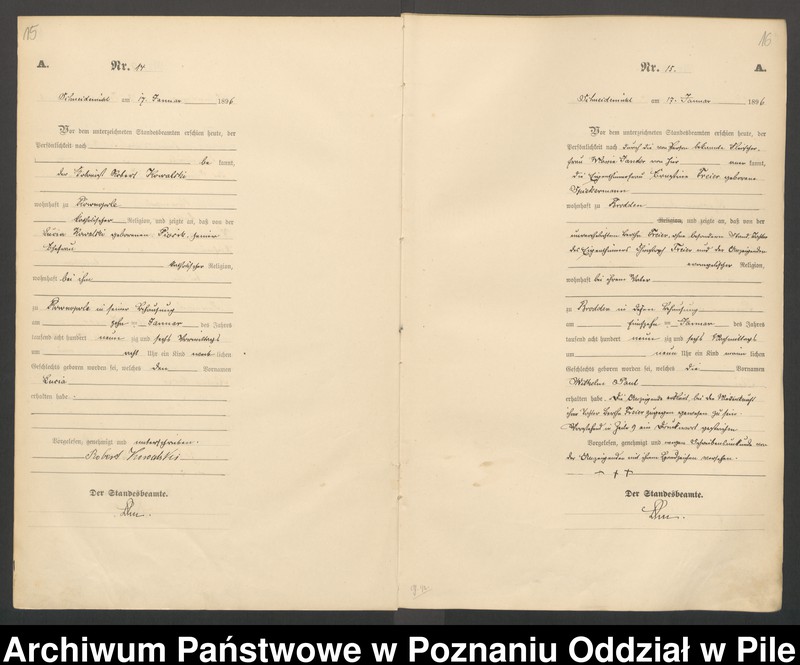 15
A. Nr. 14
Schneidemühl am 17. Januar 1896
Vor dem unterzeichneten Standesbeamten erschien heute, der
Persönlichkeit nach
be kannt,
der Robert Kowalski
wohnhaft zu
katholischer Religion, und zeigte an, daß von der
Lucia Kowalski geborenen seiner
Ehefrau
katholischer Religion,
wohnhaft bei ihm
zu in seiner Behausung
am zehn ten Januar des Jahres
tausend acht hundert neun zig und sechs Vormittags
um acht Uhr ein Kind weib lichen
Geschlechts geboren worden sei, welches den Vornamen
Lucia
erhalten habe.
Vorgelesen, genehmigt und unterschrieben.
Robert Kowalski
Der Standesbeamte.
16
Nr. 15. A.
Schneidemühl am 17. Januar 1896
Vor dem unterzeichneten Standesbeamten erschien heute, der
Persönlichkeit nach durch die von Person bekannte
frau Marie von hier aner kannt,
die Eigenthümerfrau Ernestine Freier geborene
Spickermann
wohnhaft zu Brodden
Religion, und zeigte an, daß von der
unverehelichten Bertha Freier, ohne besonderen Stand, Tochter
des Eigenthümers Christoph Freier und der Anzeigenden
evangelischer Religion,
wohnhaft bei ihrem Vater
zu Brodden in dessen Behausung
am fünfzehn ten Januar des Jahres
tausend acht hundert neun zig und sechs Nachmittags
um neun Uhr ein Kind männ lichen
Geschlechts geboren worden sei, welches die Vornamen
Wilhelm Paul
erhalten habe. Die Anzeigende erklärt, bei der Niederkunft
ihrer Tochter Bertha Freier zugegen gewesen zu sein.
Vorstehend in Zeile 9 ein Druckwort gestrichen.
Vorgelesen, genehmigt und wegen Schreibensunkunde von
der Anzeigenden mit ihrem Handzeichen versehen.
+ + +
Der Standesbeamte.
Archiwum Państwowe w Poznaniu Oddział w Pile